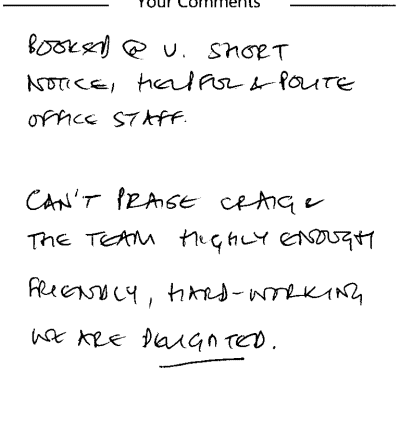 Your Comments
BOOKED @ V. SHORT
NOTICE, HELPFUL & POLITE
OFFICE STAFF.
CAN'T PRAISE CRAIG &
THE TEAM HIGHLY ENOUGH
FRIENDLY, HARD-WORKING
WE ARE DELIGHTED.